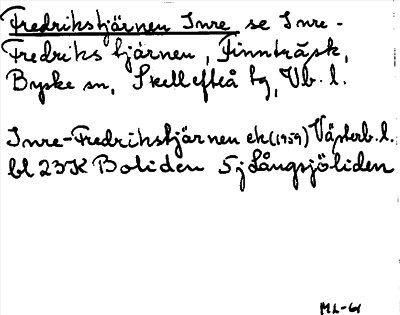 Fredrikstjärnen Inre se Inre-
Fredriks tjärnen, Finnträsk,
Byske sn, Skellefteå tg, Vb. l.
Inre-Fredrikstjärnen ek (1959) Västerb. l.
bl 23K Boliden 5j Långsjöliden
ML-61